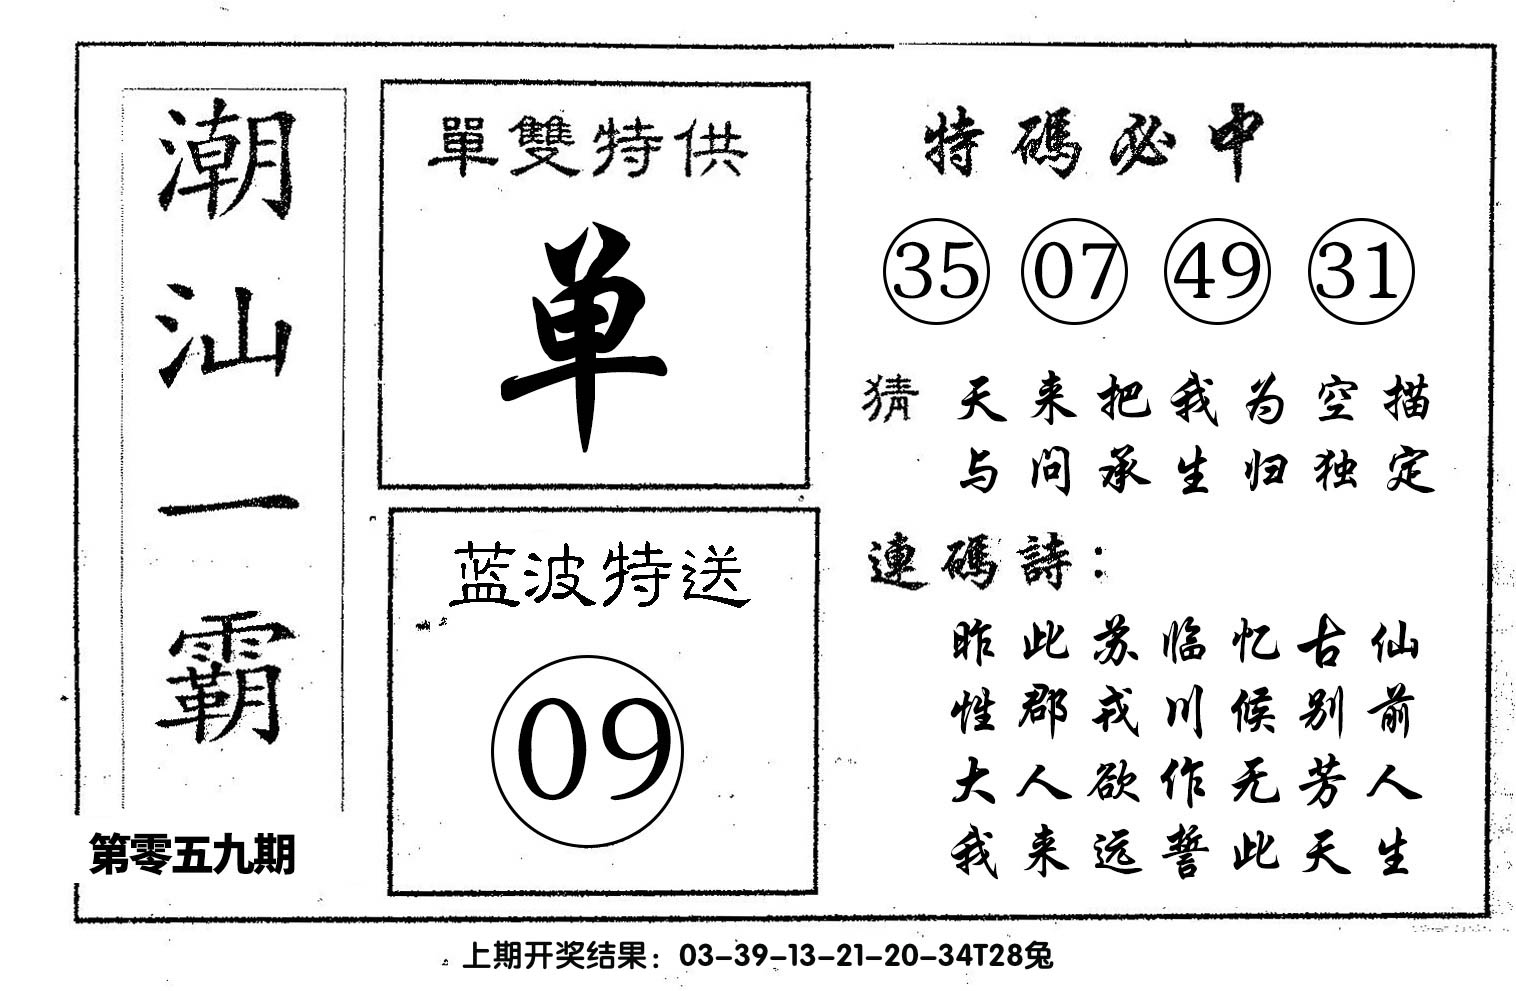 潮汕一霸
第零五九期
單雙特供
单
蓝波特送
09
特碼必中
35 07 49 31
猜 天来把我为空描
与问承生归独定
連碼詩：
昨此苏临忆古仙
性郡戎川候别前
大人欲作无芳人
我来远誓此天生
上期开奖结果：03-39-13-21-20-34T28兔